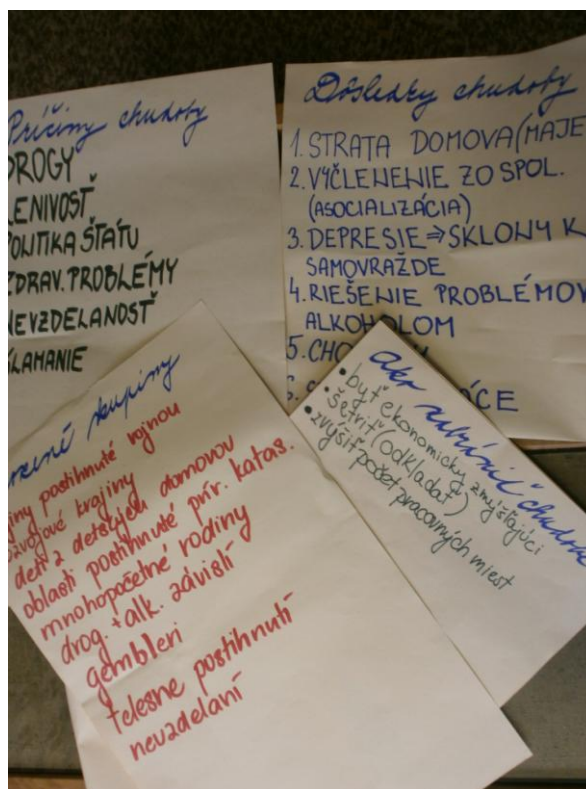 Príčiny chudoby
DROGY
LENIVOSŤ
POLITIKA ŠTÁTU
ZDRAV. PROBLÉMY
NEVZDELANOSŤ
KLAMANIE
Dôsledky chudoby
1. STRATA DOMOVA (MAJE
2. VYČLENENIE ZO SPOL.
(ASOCIALIZÁCIA)
3. DEPRESIE ⇒ SKLONY K
SAMOVRAŽDE
4. RIEŠENIE PROBLÉMOV
ALKOHOLOM
5. CHO
6. S ÁCE
skupiny
postihnuté vojnou
rozvojové krajiny
deti z detských domovov
oblasti postihnuté prír. katas.
mnohopočetné rodiny
drog. + alk. závislí
gembleri
telesne postihnutí
nevzdelaní
ako zabrániť chudobe
• byť ekonomicky zmýšľajúci
• šetriť (odkladať)
• zvýšiť počet pracovných miest